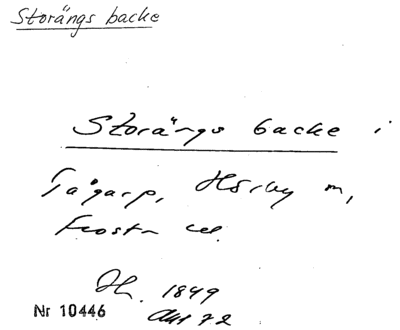 Storängs backe
Storängs backe i
Tågarp, Hörby m,
Frosta
1849
Nr 10446